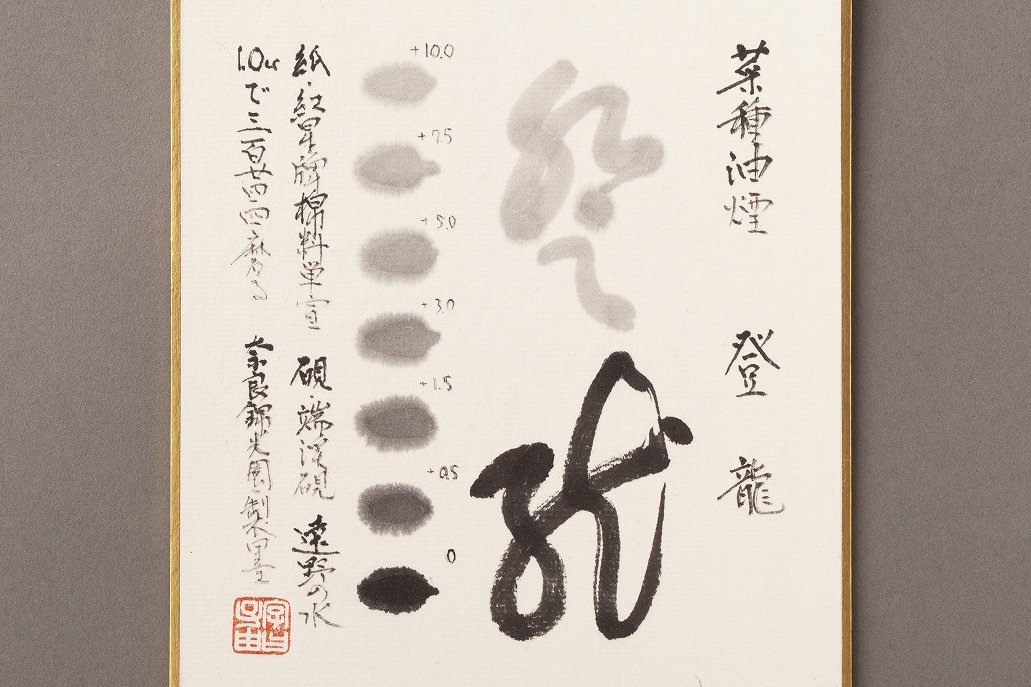 菜種油煙 登龍
+10.0
+7.5
+5.0
+3.0
+1.5
+0.5
0
紙・紅星牌棉料単宣 硯・端渓硯 遠野の水
1.0ccで三百廿四回磨る 奈良錦光園製墨